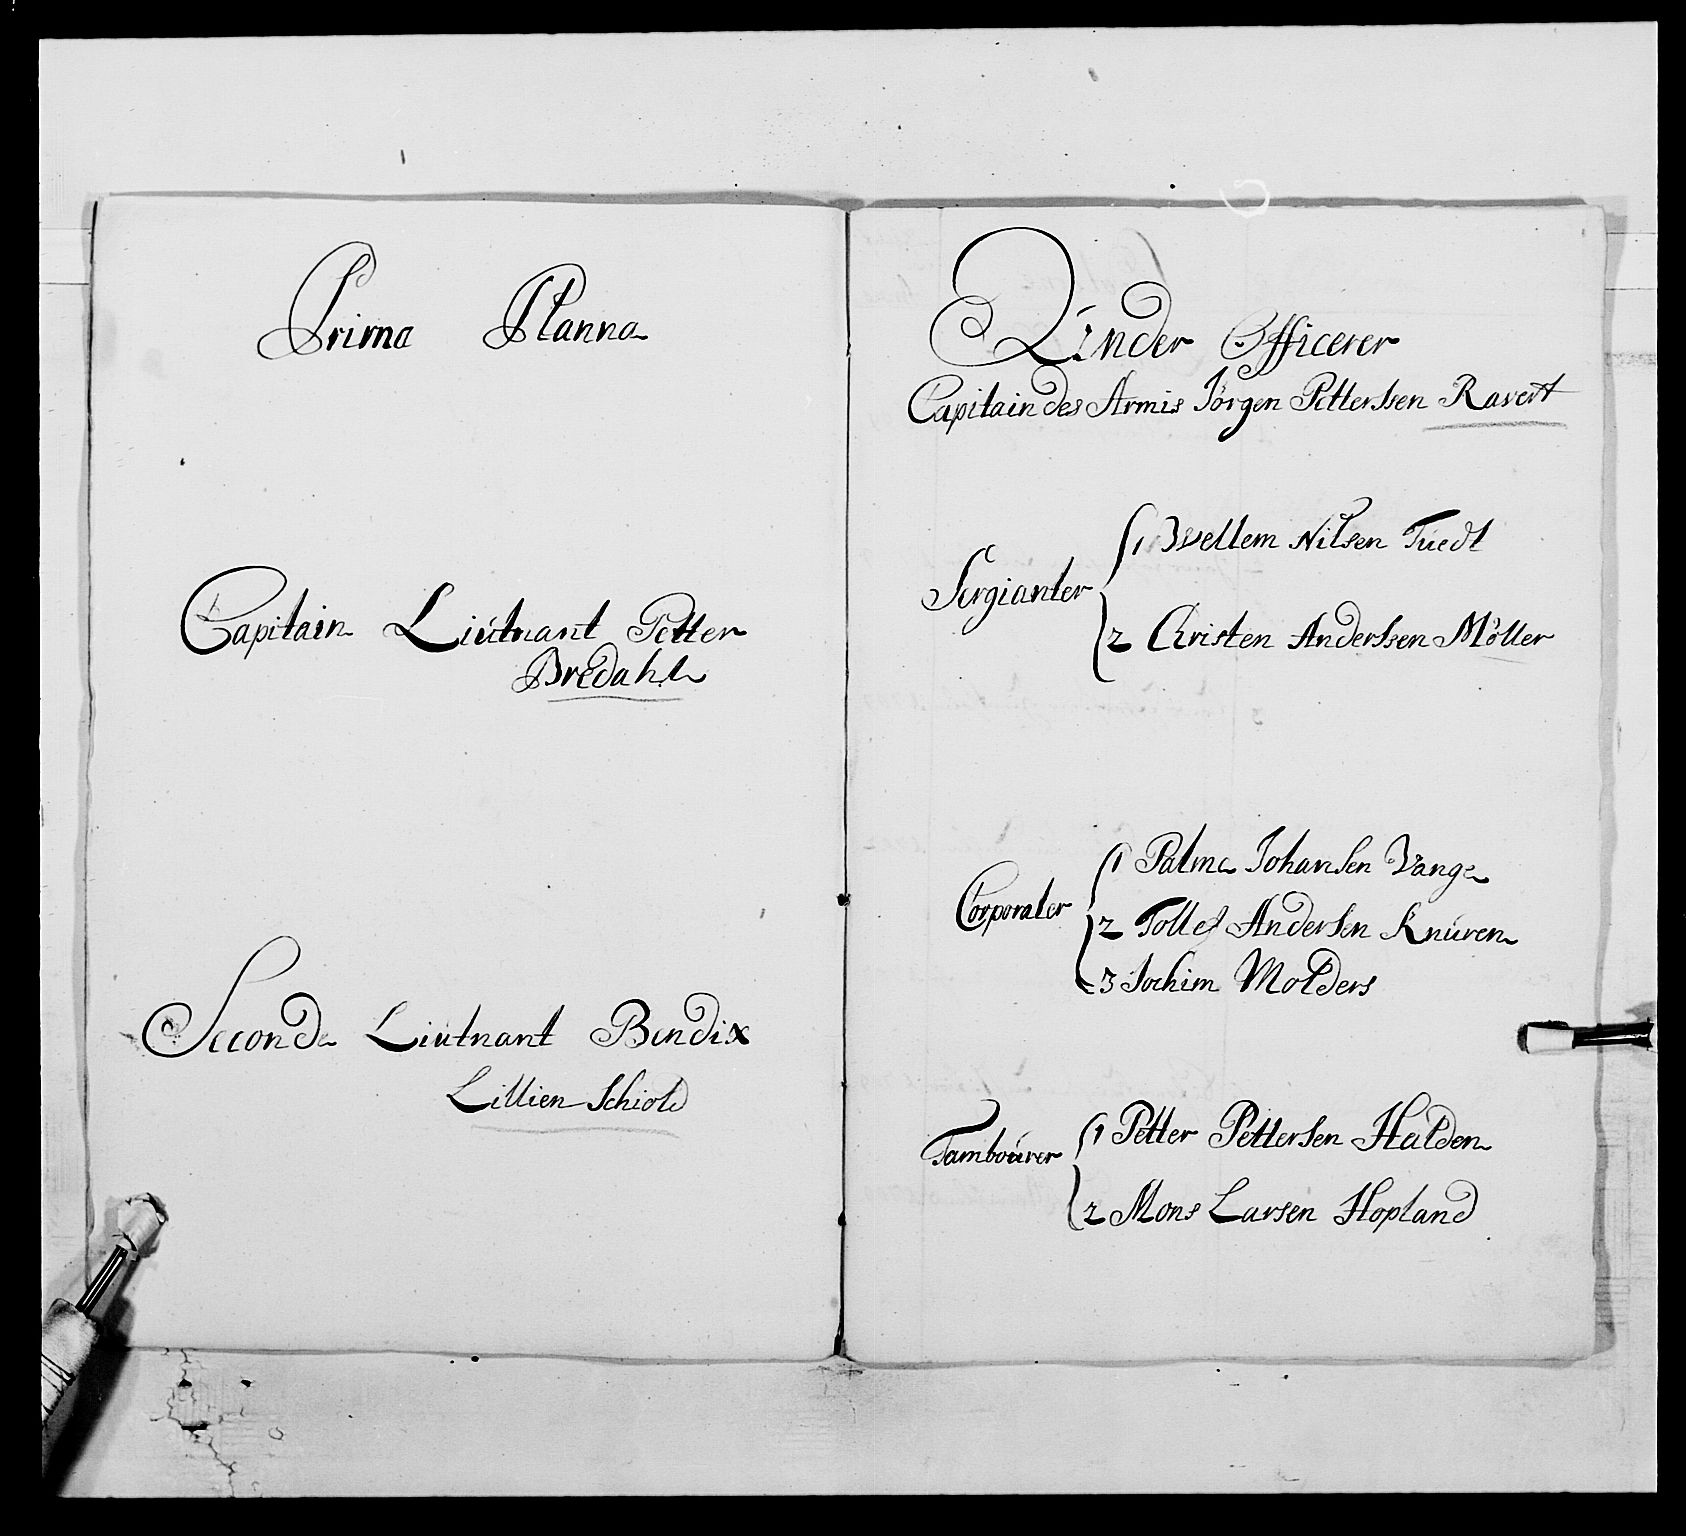 Prima Planna
Capitain Lieutnant Petter
Bredahl
Second Lieutnant Bendix
Lillien Schiold
Under Officerer
Capitain des Armis Jörgen Petterssen Ravert
Sergianter
1 Wellem Nilsen Tuedt
2 Christen Anderssen Möller
Corporaler
1 Palme Johansen Vange
2 Tollef Andersen Knuren
3 Jochim Molders
Tambourer
1 Petter Pettersen Halden
2 Mons Larsen Hopland